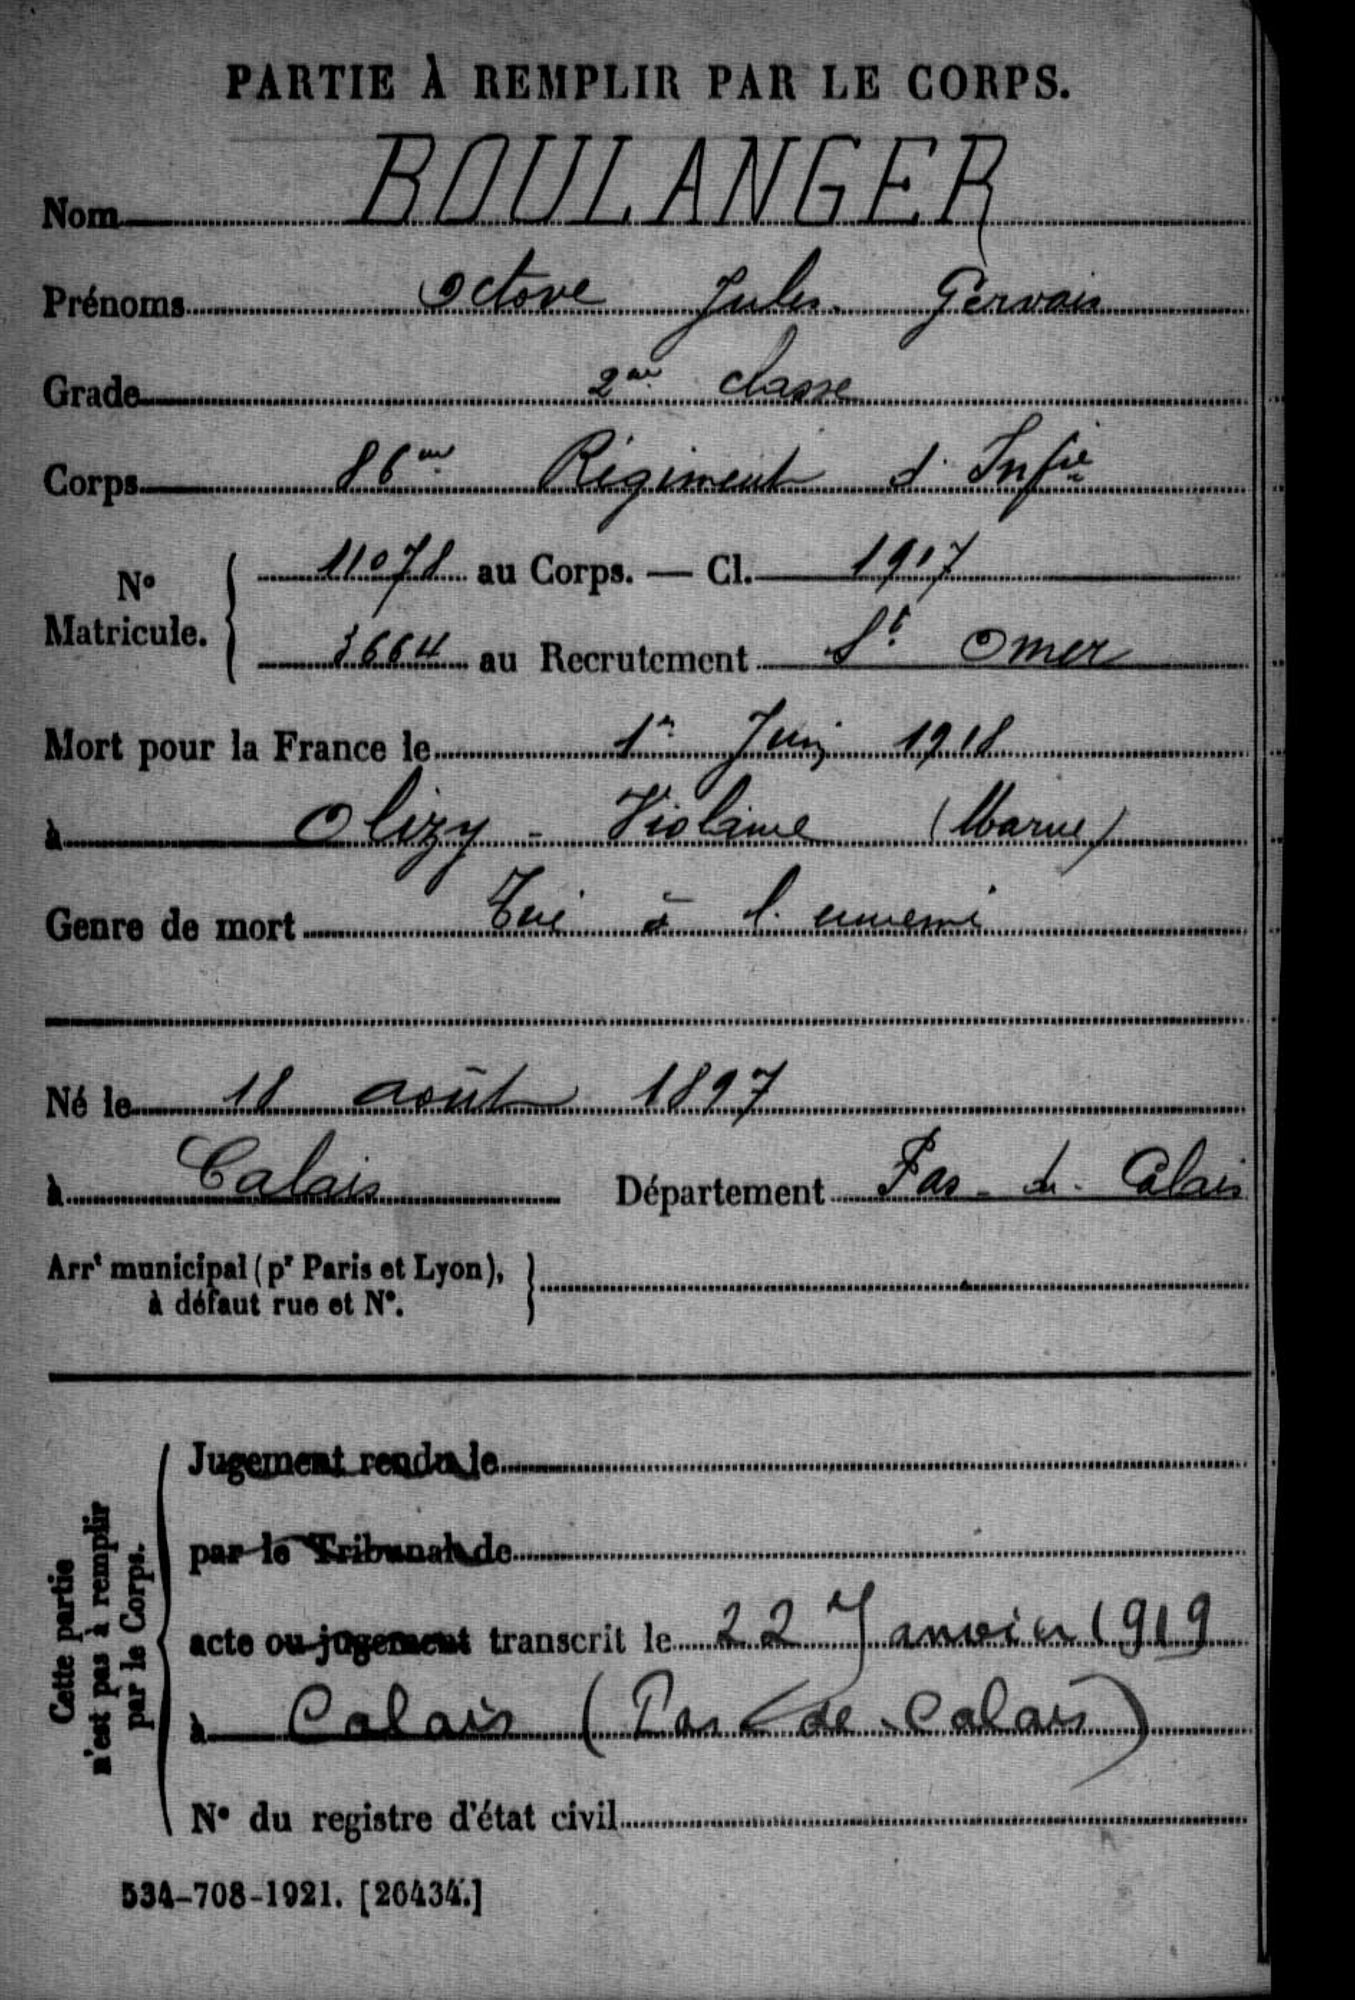 PARTIE À REMPLIR PAR LE CORPS.
Nom BOULANGER
Prénoms Octave Jules Gervais
Grade 2me classe
Corps 86me Régiment d'Infie
N° Matricule. 11078 au Corps. — Cl. 1917
3664 au Recrutement St Omer
Mort pour la France le 1er Juin 1918
à Olizy - Violaine (Marne)
Genre de mort Tué à l'ennemi
Né le 18 août 1897
à Calais Département Pas-de-Calais
Arrt municipal (pr Paris et Lyon),
à défaut rue et N°.
Cette partie
n'est pas à remplir
par le Corps.
Jugement rendu le
par le Tribunal de
acte ou jugement transcrit le 22 Janvier 1919
à Calais (Pas de-Calais)
N° du registre d'état civil
534-708-1921. [26434.]